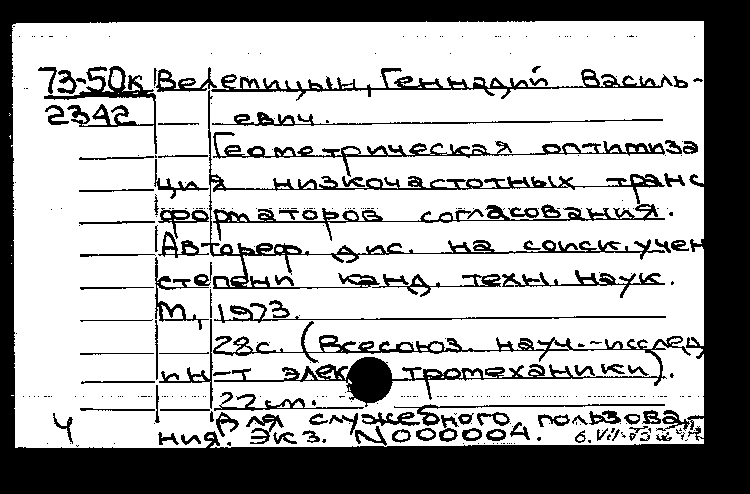 73-50к Велетицын, Геннадий Василь-
2342 евич.
Геометрическая оптимиза
ция низкочастотных транс
форматоров согласования.
Автореф. дис. на соиск. учен
степени канд. техн. наук.
М., 1973.
28с. (Всесоюз. науч.-исслед
ин-т элек тромеханики).
22 см.
Для служебного пользова-
ч ния. Экз. N000004. 6.VII-73